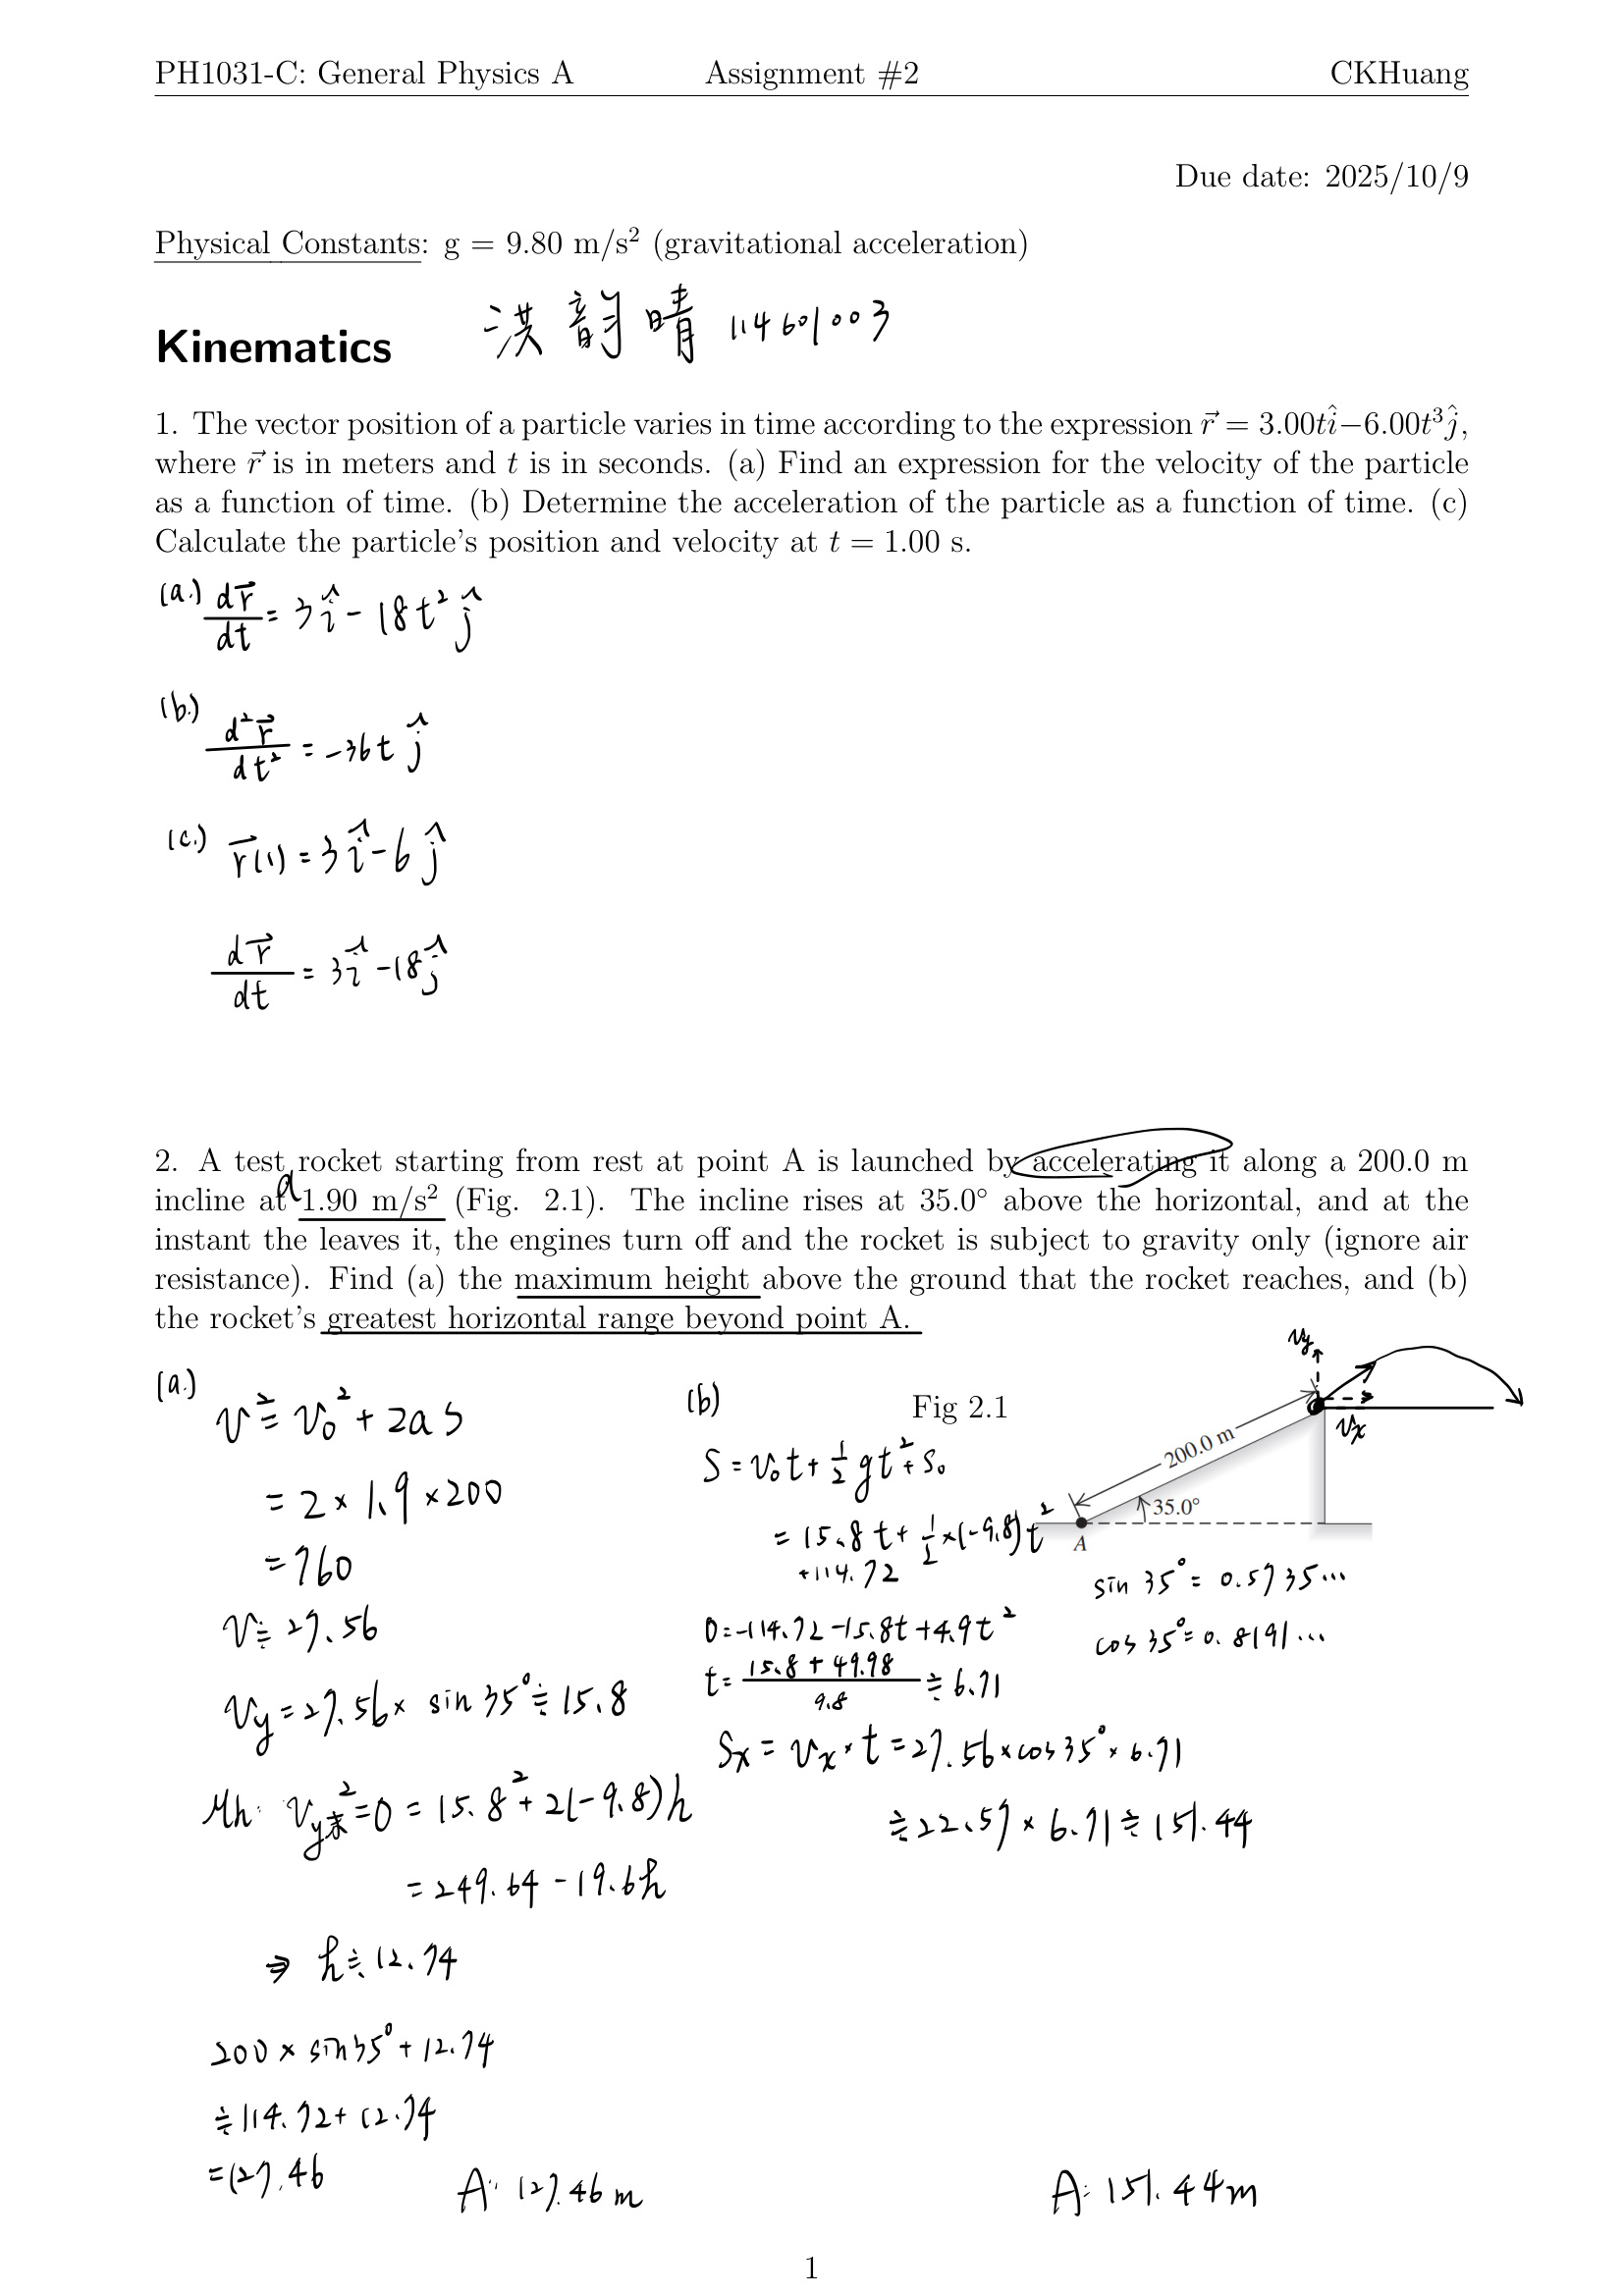 PH1031-C: General Physics A Assignment #2 CKHuang
Due date: 2025/10/9
Physical Constants: g = 9.80 m/s² (gravitational acceleration)
Kinematics 洪韵晴 114601003
1. The vector position of a particle varies in time according to the expression r⃗ = 3.00tî−6.00t³ĵ,
where r⃗ is in meters and t is in seconds. (a) Find an expression for the velocity of the particle
as a function of time. (b) Determine the acceleration of the particle as a function of time. (c)
Calculate the particle's position and velocity at t = 1.00 s.
(a.) dr⃗/dt = 3î - 18t²ĵ
(b.) d²r⃗/dt² = -36t ĵ
(c.) r⃗(1) = 3î - 6ĵ
dr⃗/dt = 3î - 18ĵ
2. A test rocket starting from rest at point A is launched by accelerating it along a 200.0 m
incline at 1.90 m/s² (Fig. 2.1). The incline rises at 35.0° above the horizontal, and at the
instant the leaves it, the engines turn off and the rocket is subject to gravity only (ignore air
resistance). Find (a) the maximum height above the ground that the rocket reaches, and (b)
the rocket's greatest horizontal range beyond point A.
a
(a.)
v² = v₀² + 2as
= 2 × 1.9 × 200
= 760
v ≒ 27.56
vy = 27.56 × sin 35° ≒ 15.8
Mh: vy末² = 0 = 15.8² + 2(-9.8)h
= 249.64 - 19.6h
⇒ h ≒ 12.74
200 × sin35° + 12.74
≒ 114.72 + 12.74
= 127.46
A: 127.46 m
(b)
S = v₀t + ½gt² + S₀
= 15.8t + ½×(-9.8)t²
+114.72
0 = -114.72 - 15.8t + 4.9t²
t = (15.8 + 49.98)/9.8 ≒ 6.71
Sx = vx × t = 27.56 × cos35° × 6.71
≒ 22.57 × 6.71 ≒ 151.44
A: 151.44m
Fig 2.1
vy
vx
200.0 m
35.0°
A
sin 35° = 0.5735...
cos 35° = 0.8191...
1